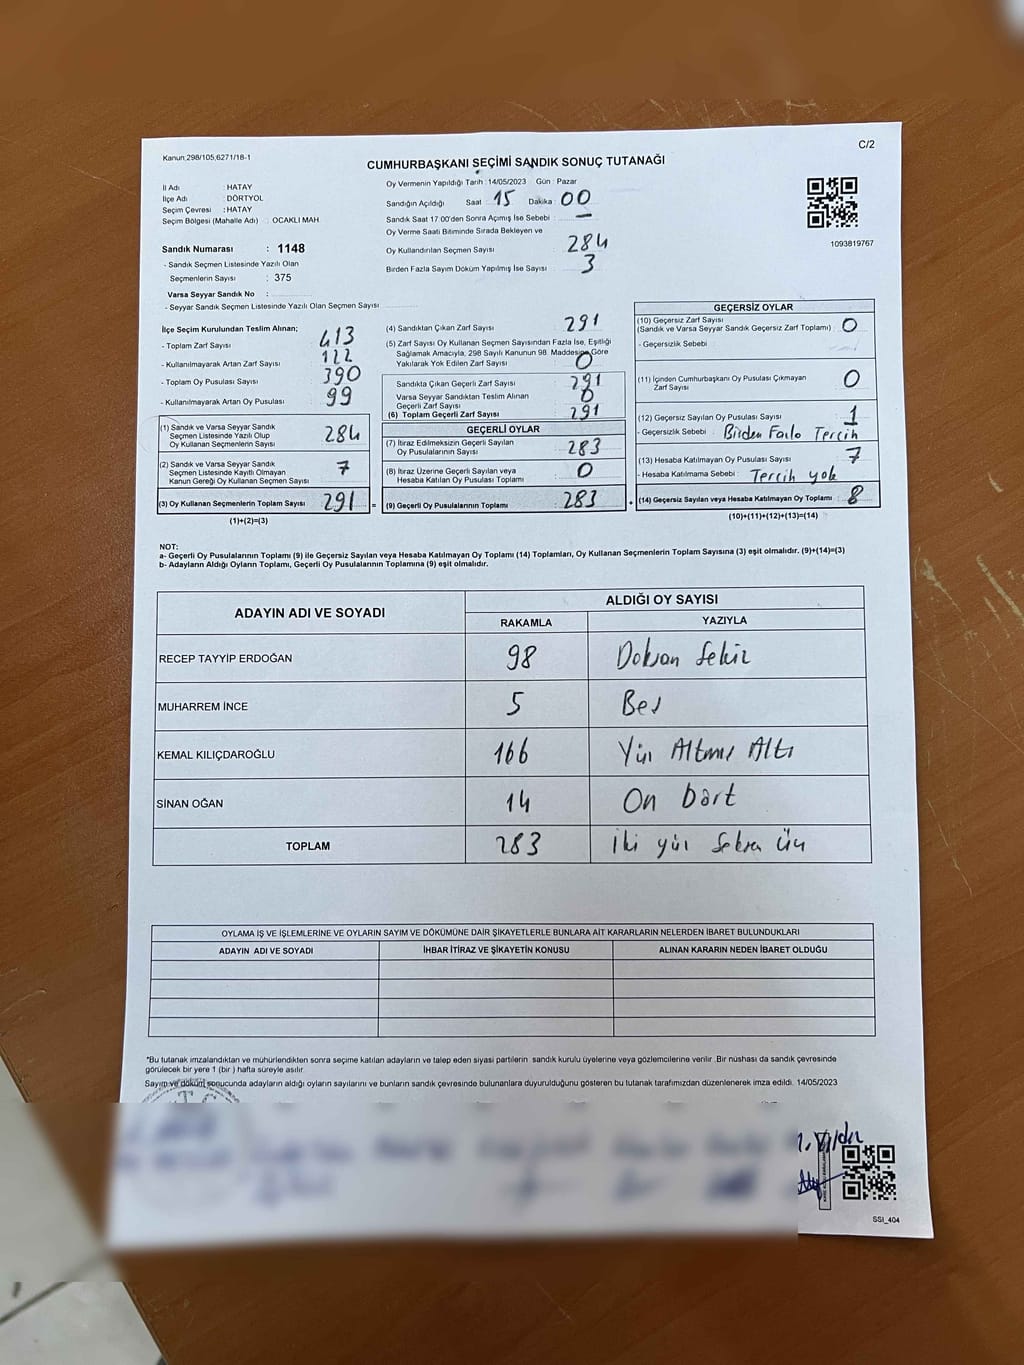 Kanun;298/105,6271/18-1
C/2
CUMHURBAŞKANI SEÇİMİ SANDIK SONUÇ TUTANAĞI
İl Adı : HATAY
İlçe Adı : DÖRTYOL
Seçim Çevresi : HATAY
Seçim Bölgesi (Mahalle Adı) : OCAKLI MAH.
Sandık Numarası : 1148
- Sandık Seçmen Listesinde Yazılı Olan
Seçmenlerin Sayısı : 375
Varsa Seyyar Sandık No :
- Seyyar Sandık Seçmen Listesinde Yazılı Olan Seçmen Sayısı
Oy Vermenin Yapıldığı Tarih :14/05/2023 Gün : Pazar
Sandığın Açıldığı Saat 15 Dakika : 00
Sandık Saat 17.00'den Sonra Açımış İse Sebebi : –
Oy Verme Saati Bitiminde Sırada Bekleyen ve
Oy Kullandırılan Seçmen Sayısı 284
Birden Fazla Sayım Döküm Yapılmış İse Sayısı 3
1093819767
İlçe Seçim Kurulundan Teslim Alınan;
- Toplam Zarf Sayısı : 413
- Kullanılmayarak Artan Zarf Sayısı : 122
- Toplam Oy Pusulası Sayısı : 390
- Kullanılmayarak Artan Oy Pusulası : 99
(1) Sandık ve Varsa Seyyar Sandık
Seçmen Listesinde Yazılı Olup
Oy Kullanan Seçmenlerin Sayısı 284
(2) Sandık ve Varsa Seyyar Sandık
Seçmen Listesinde Kayıtlı Olmayan
Kanun Gereği Oy Kullanan Seçmen Sayısı 7
(3) Oy Kullanan Seçmenlerin Toplam Sayısı 291 =
(1)+(2)=(3)
(4) Sandıktan Çıkan Zarf Sayısı : 291
(5) Zarf Sayısı Oy Kullanan Seçmen Sayısından Fazla İse, Eşitliği
Sağlamak Amacıyla, 298 Sayılı Kanunun 98. Maddesine Göre
Yakılarak Yok Edilen Zarf Sayısı : 0
Sandıkta Çıkan Geçerli Zarf Sayısı : 291
Varsa Seyyar Sandıktan Teslim Alınan
Geçerli Zarf Sayısı : 0
(6) Toplam Geçerli Zarf Sayısı : 291
GEÇERLİ OYLAR
(7) İtiraz Edilmeksizin Geçerli Sayılan
Oy Pusulalarının Sayısı : 283
(8) İtiraz Üzerine Geçerli Sayılan veya
Hesaba Katılan Oy Pusulası Toplamı : 0
(9) Geçerli Oy Pusulalarının Toplamı : 283 +
GEÇERSİZ OYLAR
(10) Geçersiz Zarf Sayısı
(Sandık ve Varsa Seyyar Sandık Geçersiz Zarf Toplamı) : 0
- Geçersizlik Sebebi :
(11) İçinden Cumhurbaşkanı Oy Pusulası Çıkmayan
Zarf Sayısı : 0
(12) Geçersiz Sayılan Oy Pusulası Sayısı : 1
- Geçersizlik Sebebi : Birden Fazla Tercih
(13) Hesaba Katılmayan Oy Pusulası Sayısı : 7
- Hesaba Katılmama Sebebi : Tercih yok
(14) Geçersiz Sayılan veya Hesaba Katılmayan Oy Toplamı : 8
(10)+(11)+(12)+(13)=(14)
NOT:
a- Geçerli Oy Pusulalarının Toplamı (9) ile Geçersiz Sayılan veya Hesaba Katılmayan Oy Toplamı (14) Toplamları, Oy Kullanan Seçmenlerin Toplam Sayısına (3) eşit olmalıdır. (9)+(14)=(3)
b- Adayların Aldığı Oyların Toplamı, Geçerli Oy Pusulalarının Toplamına (9) eşit olmalıdır.
ADAYIN ADI VE SOYADI ALDIĞI OY SAYISI
RAKAMLA YAZIYLA
RECEP TAYYİP ERDOĞAN 98 Doksan Sekiz
MUHARREM İNCE 5 Beş
KEMAL KILIÇDAROĞLU 166 Yüz Altmış Altı
SİNAN OĞAN 14 On dört
TOPLAM 283 İki yüz Seksen Üç
OYLAMA İŞ VE İŞLEMLERİNE VE OYLARIN SAYIM VE DÖKÜMÜNE DAİR ŞİKAYETLERLE BUNLARA AİT KARARLARIN NELERDEN İBARET BULUNDUKLARI
ADAYIN ADI VE SOYADI İHBAR İTİRAZ VE ŞİKAYETİN KONUSU ALINAN KARARIN NEDEN İBARET OLDUĞU
*Bu tutanak imzalandıktan ve mühürlendikten sonra seçime katılan adayların ve talep eden siyasi partilerin sandık kurulu üyelerine veya gözlemcilerine verilir. Bir nüshası da sandık çevresinde
görülecek bir yere 1 (bir ) hafta süreyle asılır.
Sayım ve döküm sonucunda adayların aldığı oyların sayılarını ve bunların sandık çevresinde bulunanlara duyurulduğunu gösteren bu tutanak tarafımızdan düzenlenerek imza edildi. 14/05/2023
T.C.
SSI_404